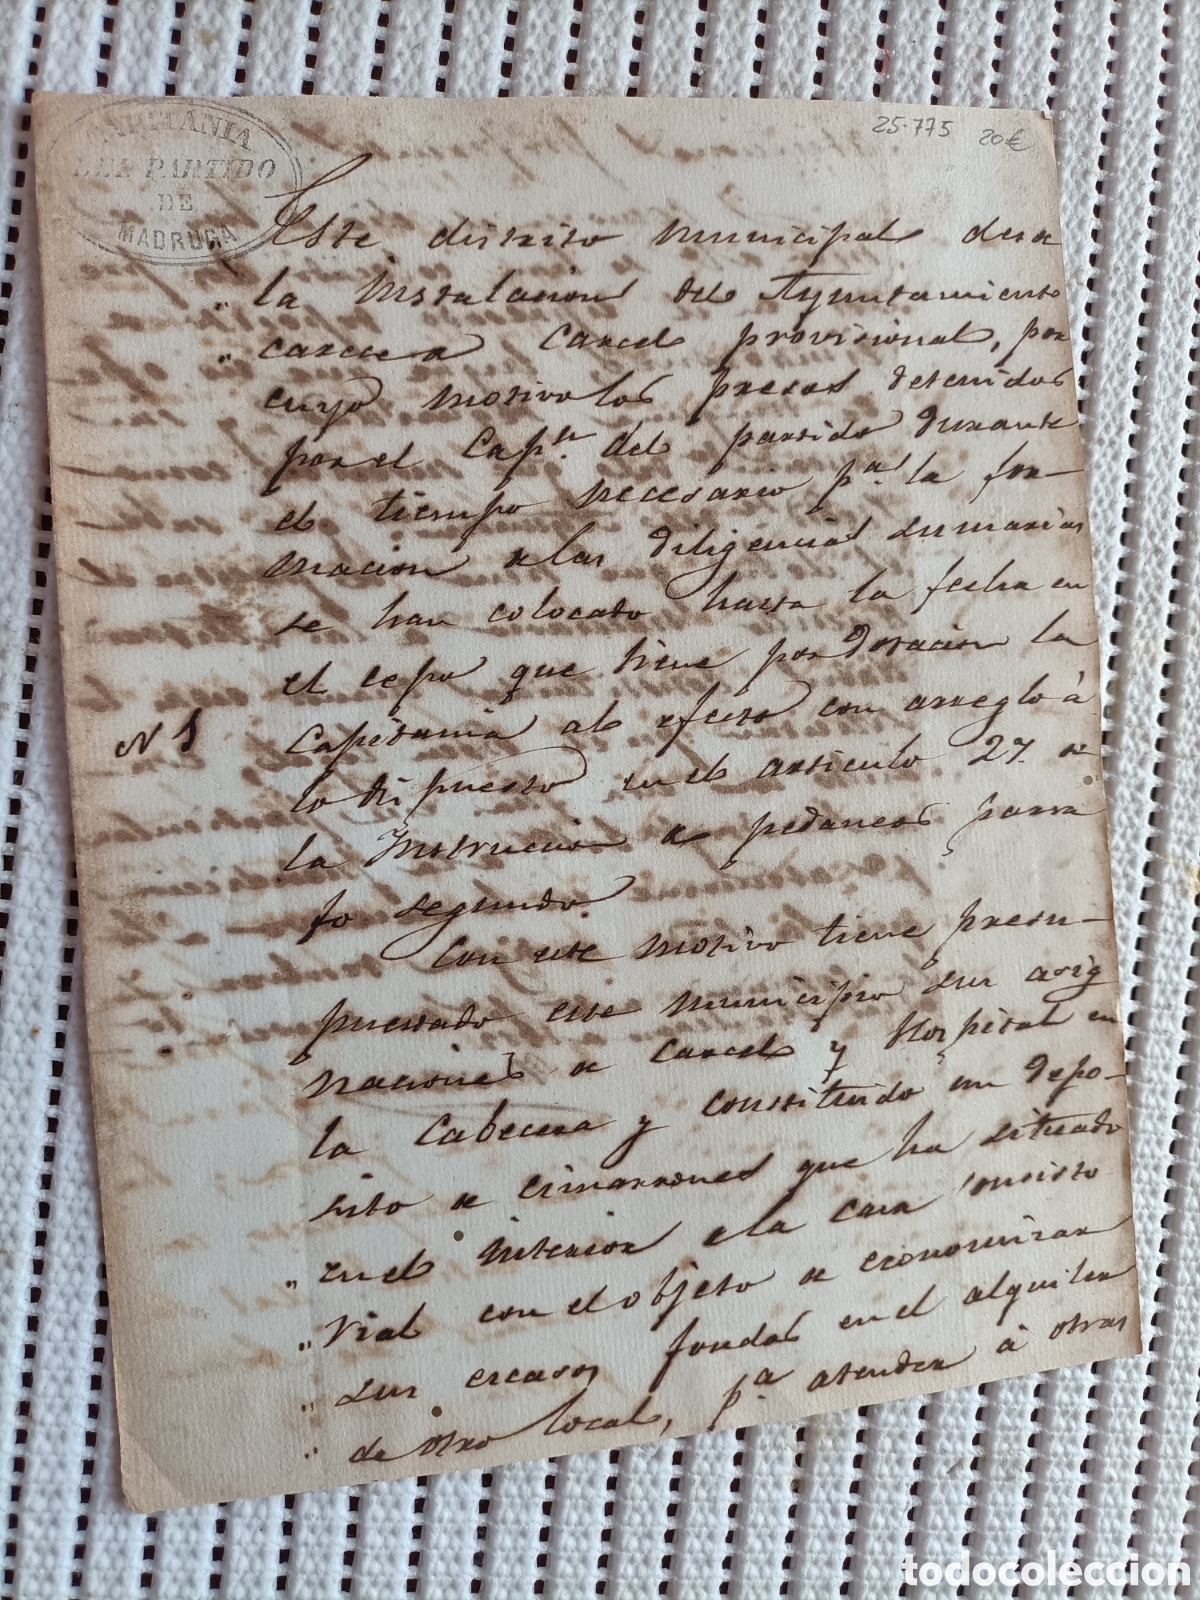 CAPITANIA
DEL PARTIDO
DE
MADRUGA
25.775 20€
Este distrito municipal desde
" la instalacion del Ayuntamiento
" carece de carcel provisional, por
cuyo motivo los presos detenidos
por el Capn. del partido durante
el tiempo necesario pa. la for-
macion de las diligencias sumarias
se han colocado hasta la fecha en
el cepo que tiene por dotacion la
N 1
Capitania al efecto con arreglo á
lo dispuesto en el articulo 27. de
la Instruccion de pedaneos parra
fo segundo.
Con este motivo tiene presu-
puestado este municipio sus asig
naciones de Carcel y Hospital en
la Cabecera y constituido un depo-
sito de cimarrones que ha situado
" en el interior de la casa consisto
" rial con el objeto de economizar
" sus escasos fondos en el alquiler
" de otro local, pa. atender á otras
todocoleccion